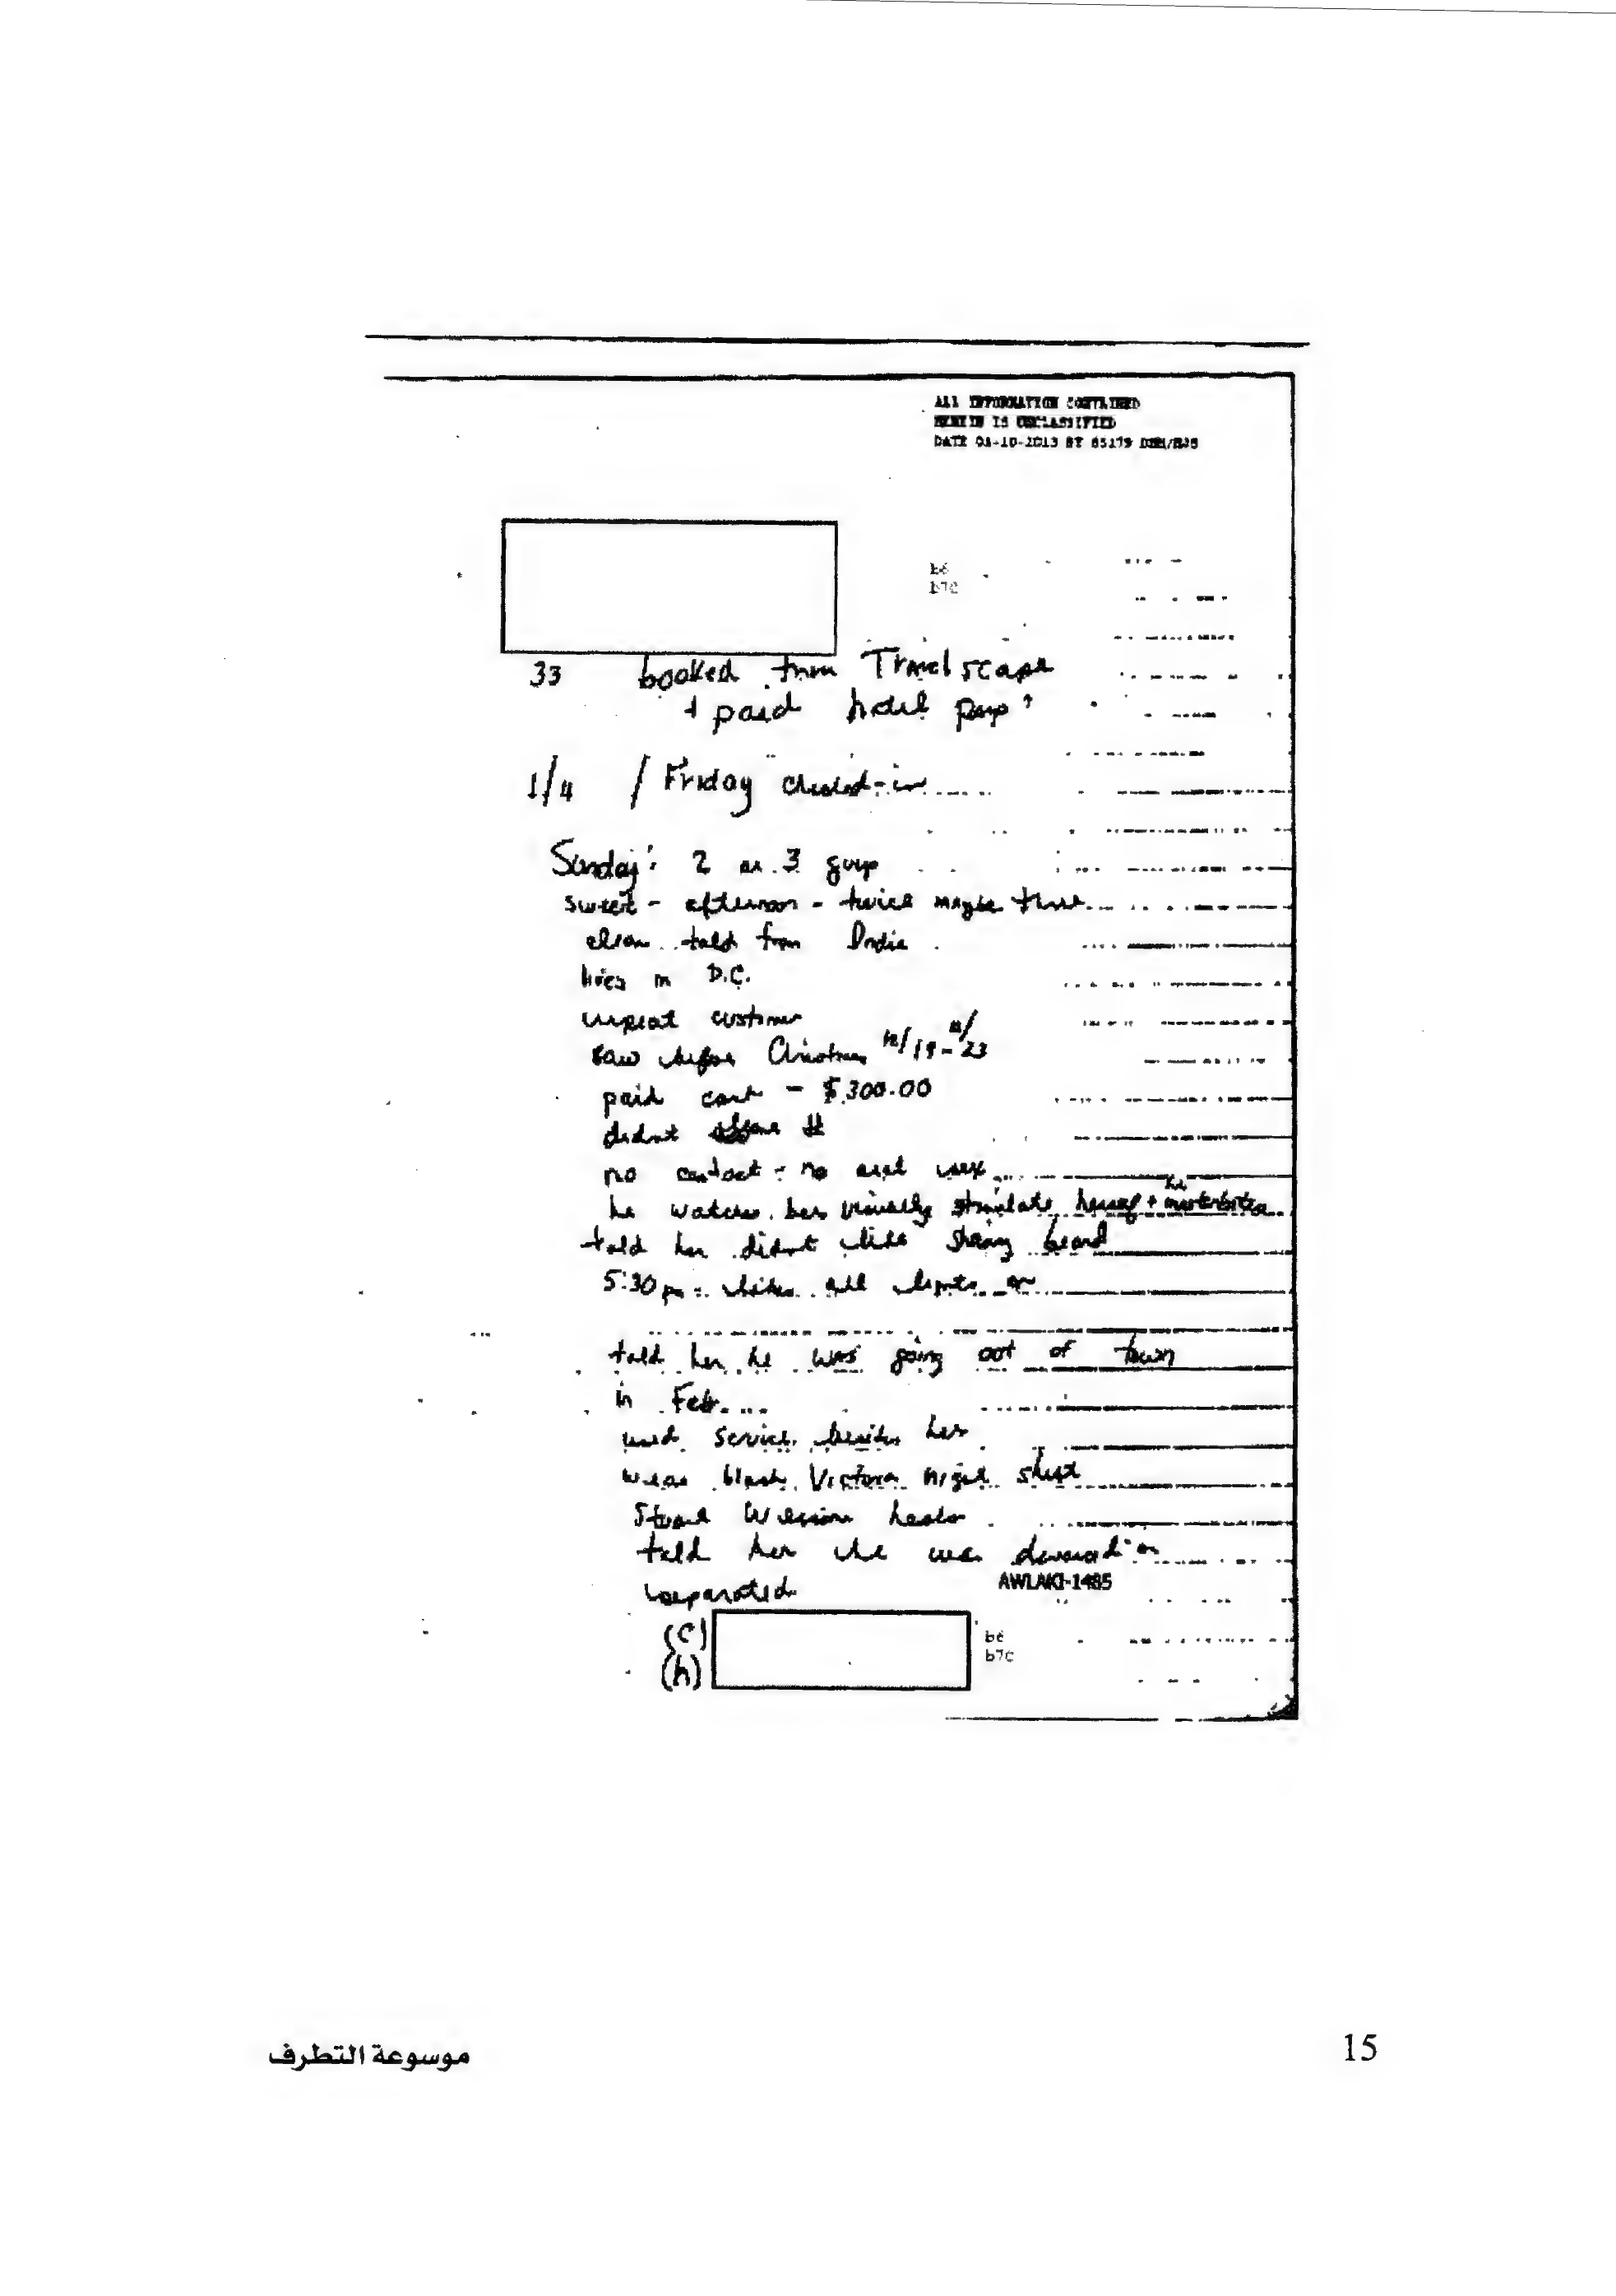 ALL INFORMATION CONTAINED
HEREIN IS UNCLASSIFIED
DATE 01-10-2013 BY 65179 DMH/HJS
b6
b7C
33 booked from Travelscape
+ paid hotel
1/4 / Friday checked-in
Sunday: 2 or 3 guys
sweet - afternoon - twice maybe three
clean told from India
lives in D.C.
repeat customer
saw before Christmas 12/19-12/23
paid cash - $300.00
didnt #
no contact - no oral sex
he watches her visually stimulate herself + he masturbates
told her didnt like beard
5:30 pm - likes all lights on
told her he was going out of town
in Feb....
used service besides her
wear black Victoria night
heels
told her he was divorced or
separated
AWLAKI-1485
(c)
(h)
b6
b7C
موسوعة التطرف
15